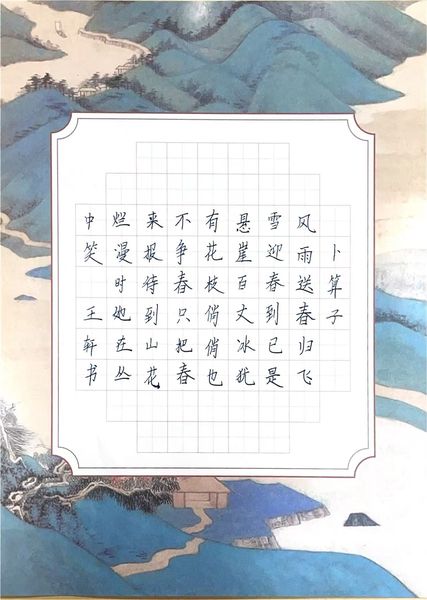 卜算子
风雨送春归飞
雪迎春到已是
悬崖百丈冰犹
有花枝俏俏也
不争春只把春
来报待到山花
烂漫时她在丛
中笑 王轩书